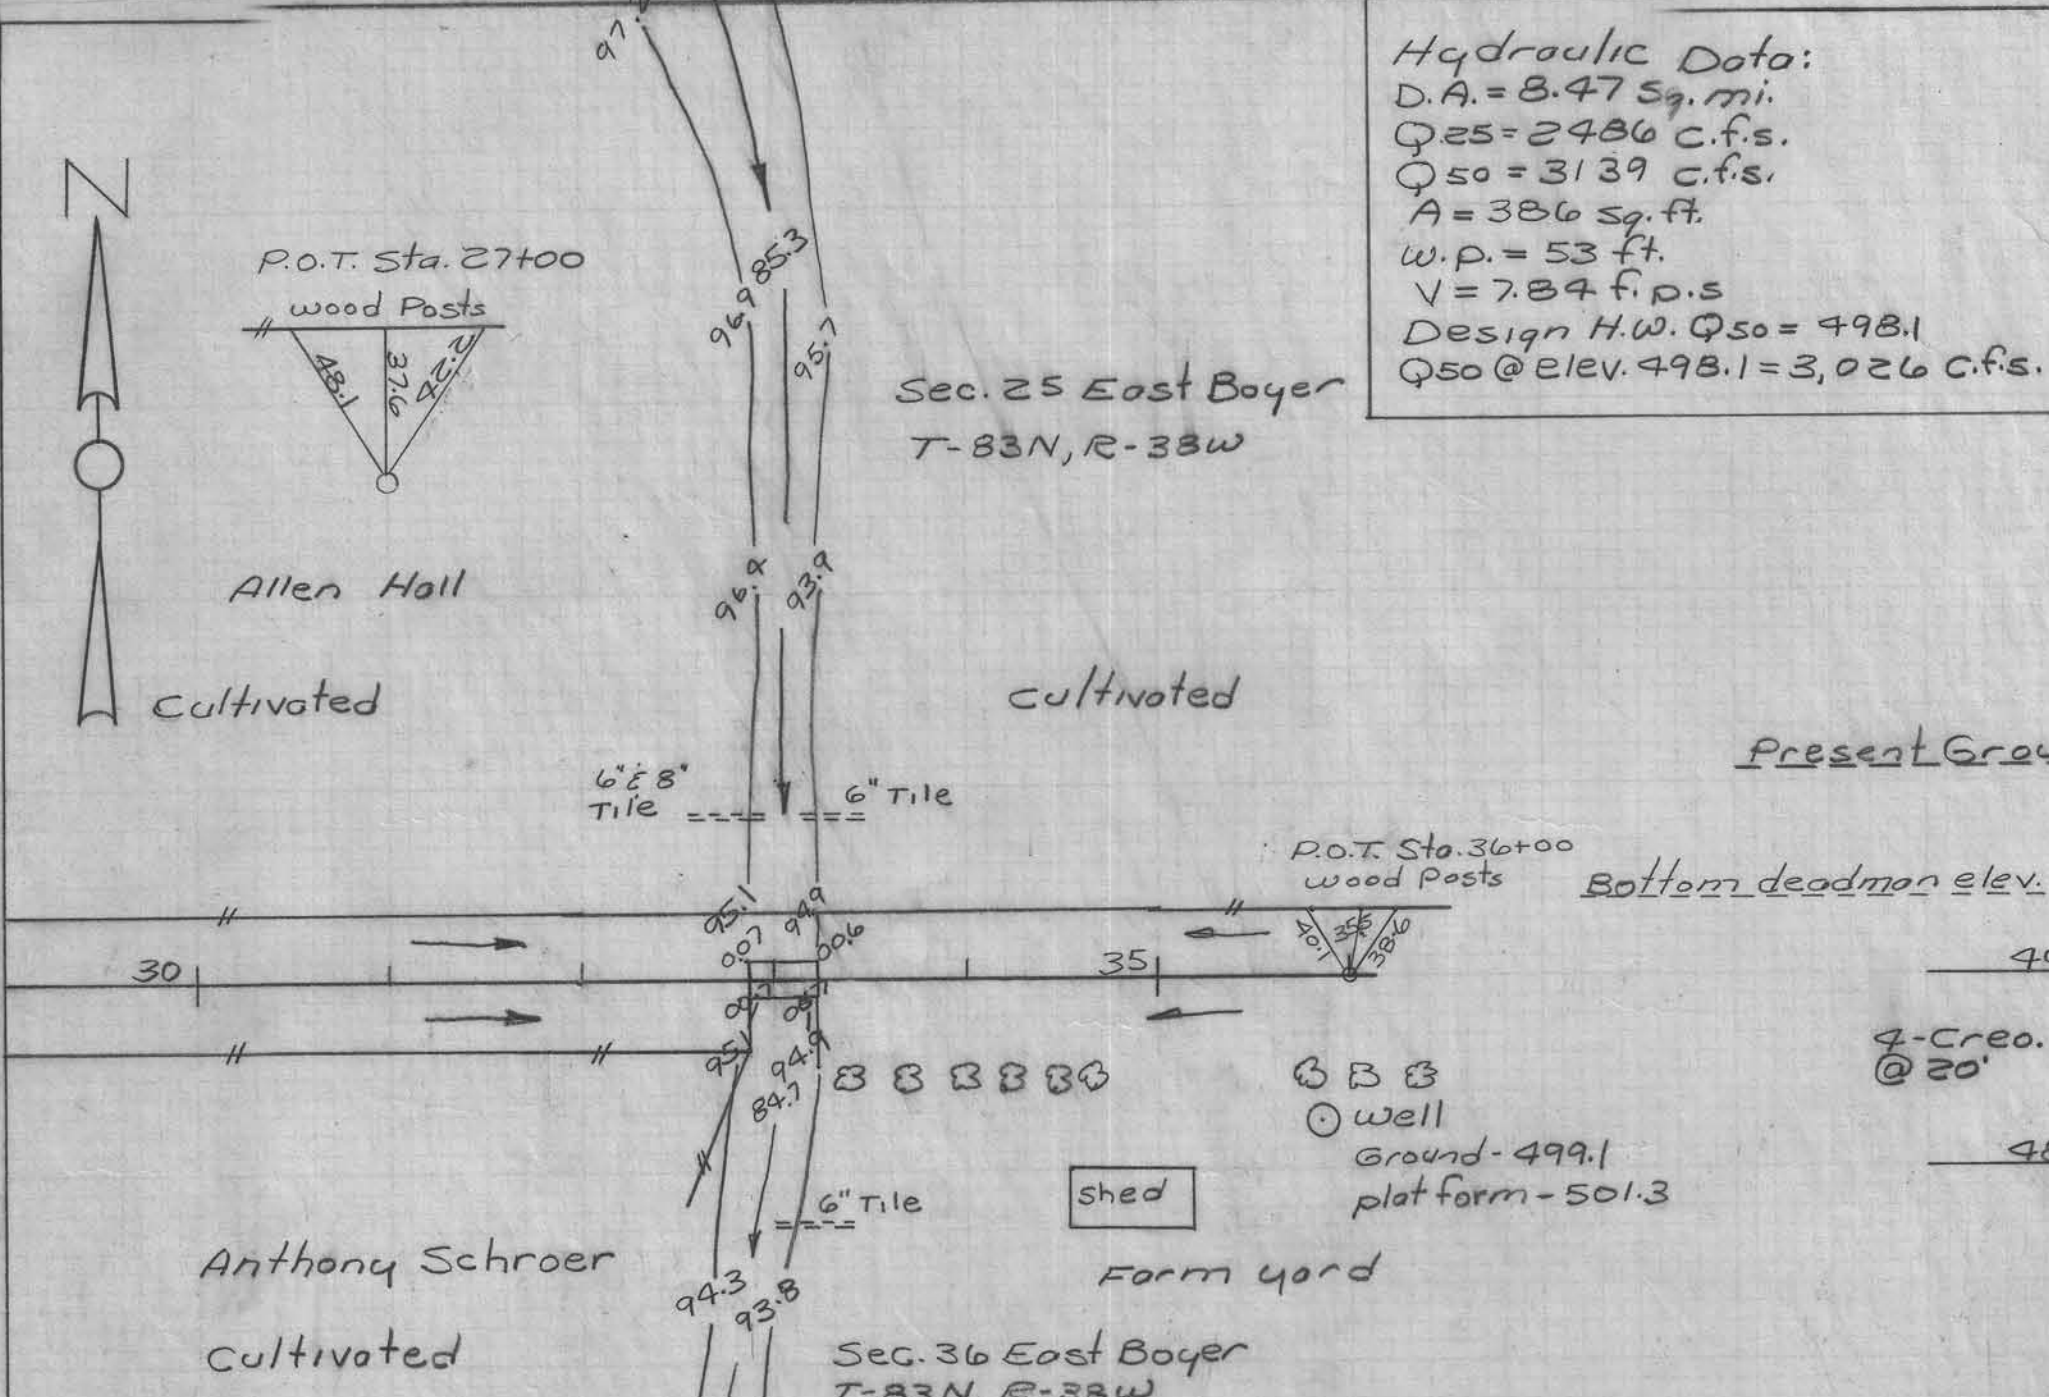 Hydraulic Data:
D.A. = 8.47 Sq. mi.
Q25 = 2486 c.f.s.
Q50 = 3139 c.f.s.
A = 386 sq. ft.
w.p. = 53 ft.
V = 7.84 f.p.s
Design H.W. Q50 = 498.1
Q50 @ elev. 498.1 = 3,026 c.f.s.
N
P.O.T. Sta. 27+00
wood Posts
48.1
37.6
97.
85.3
96.9
95.7
Sec. 25 East Boyer
T-83N, R-38W
Allen Hall
96.4
93.9
Cultivated
Cultivated
Present
6" & 8"
Tile
6" Tile
P.O.T. Sta. 36+00
wood Posts
Bottom deadman elev.
95.1
94.9
0.07
00.6
40.1
35.5
38.6
30
35
00.7
95.1
94.9
84.7
4-Creo.
@ 20'
well
Ground - 499.1
platform - 501.3
shed
6" Tile
Anthony Schroer
Farm yard
94.3
93.8
Cultivated
Sec. 36 East Boyer
T-83N, R-38W